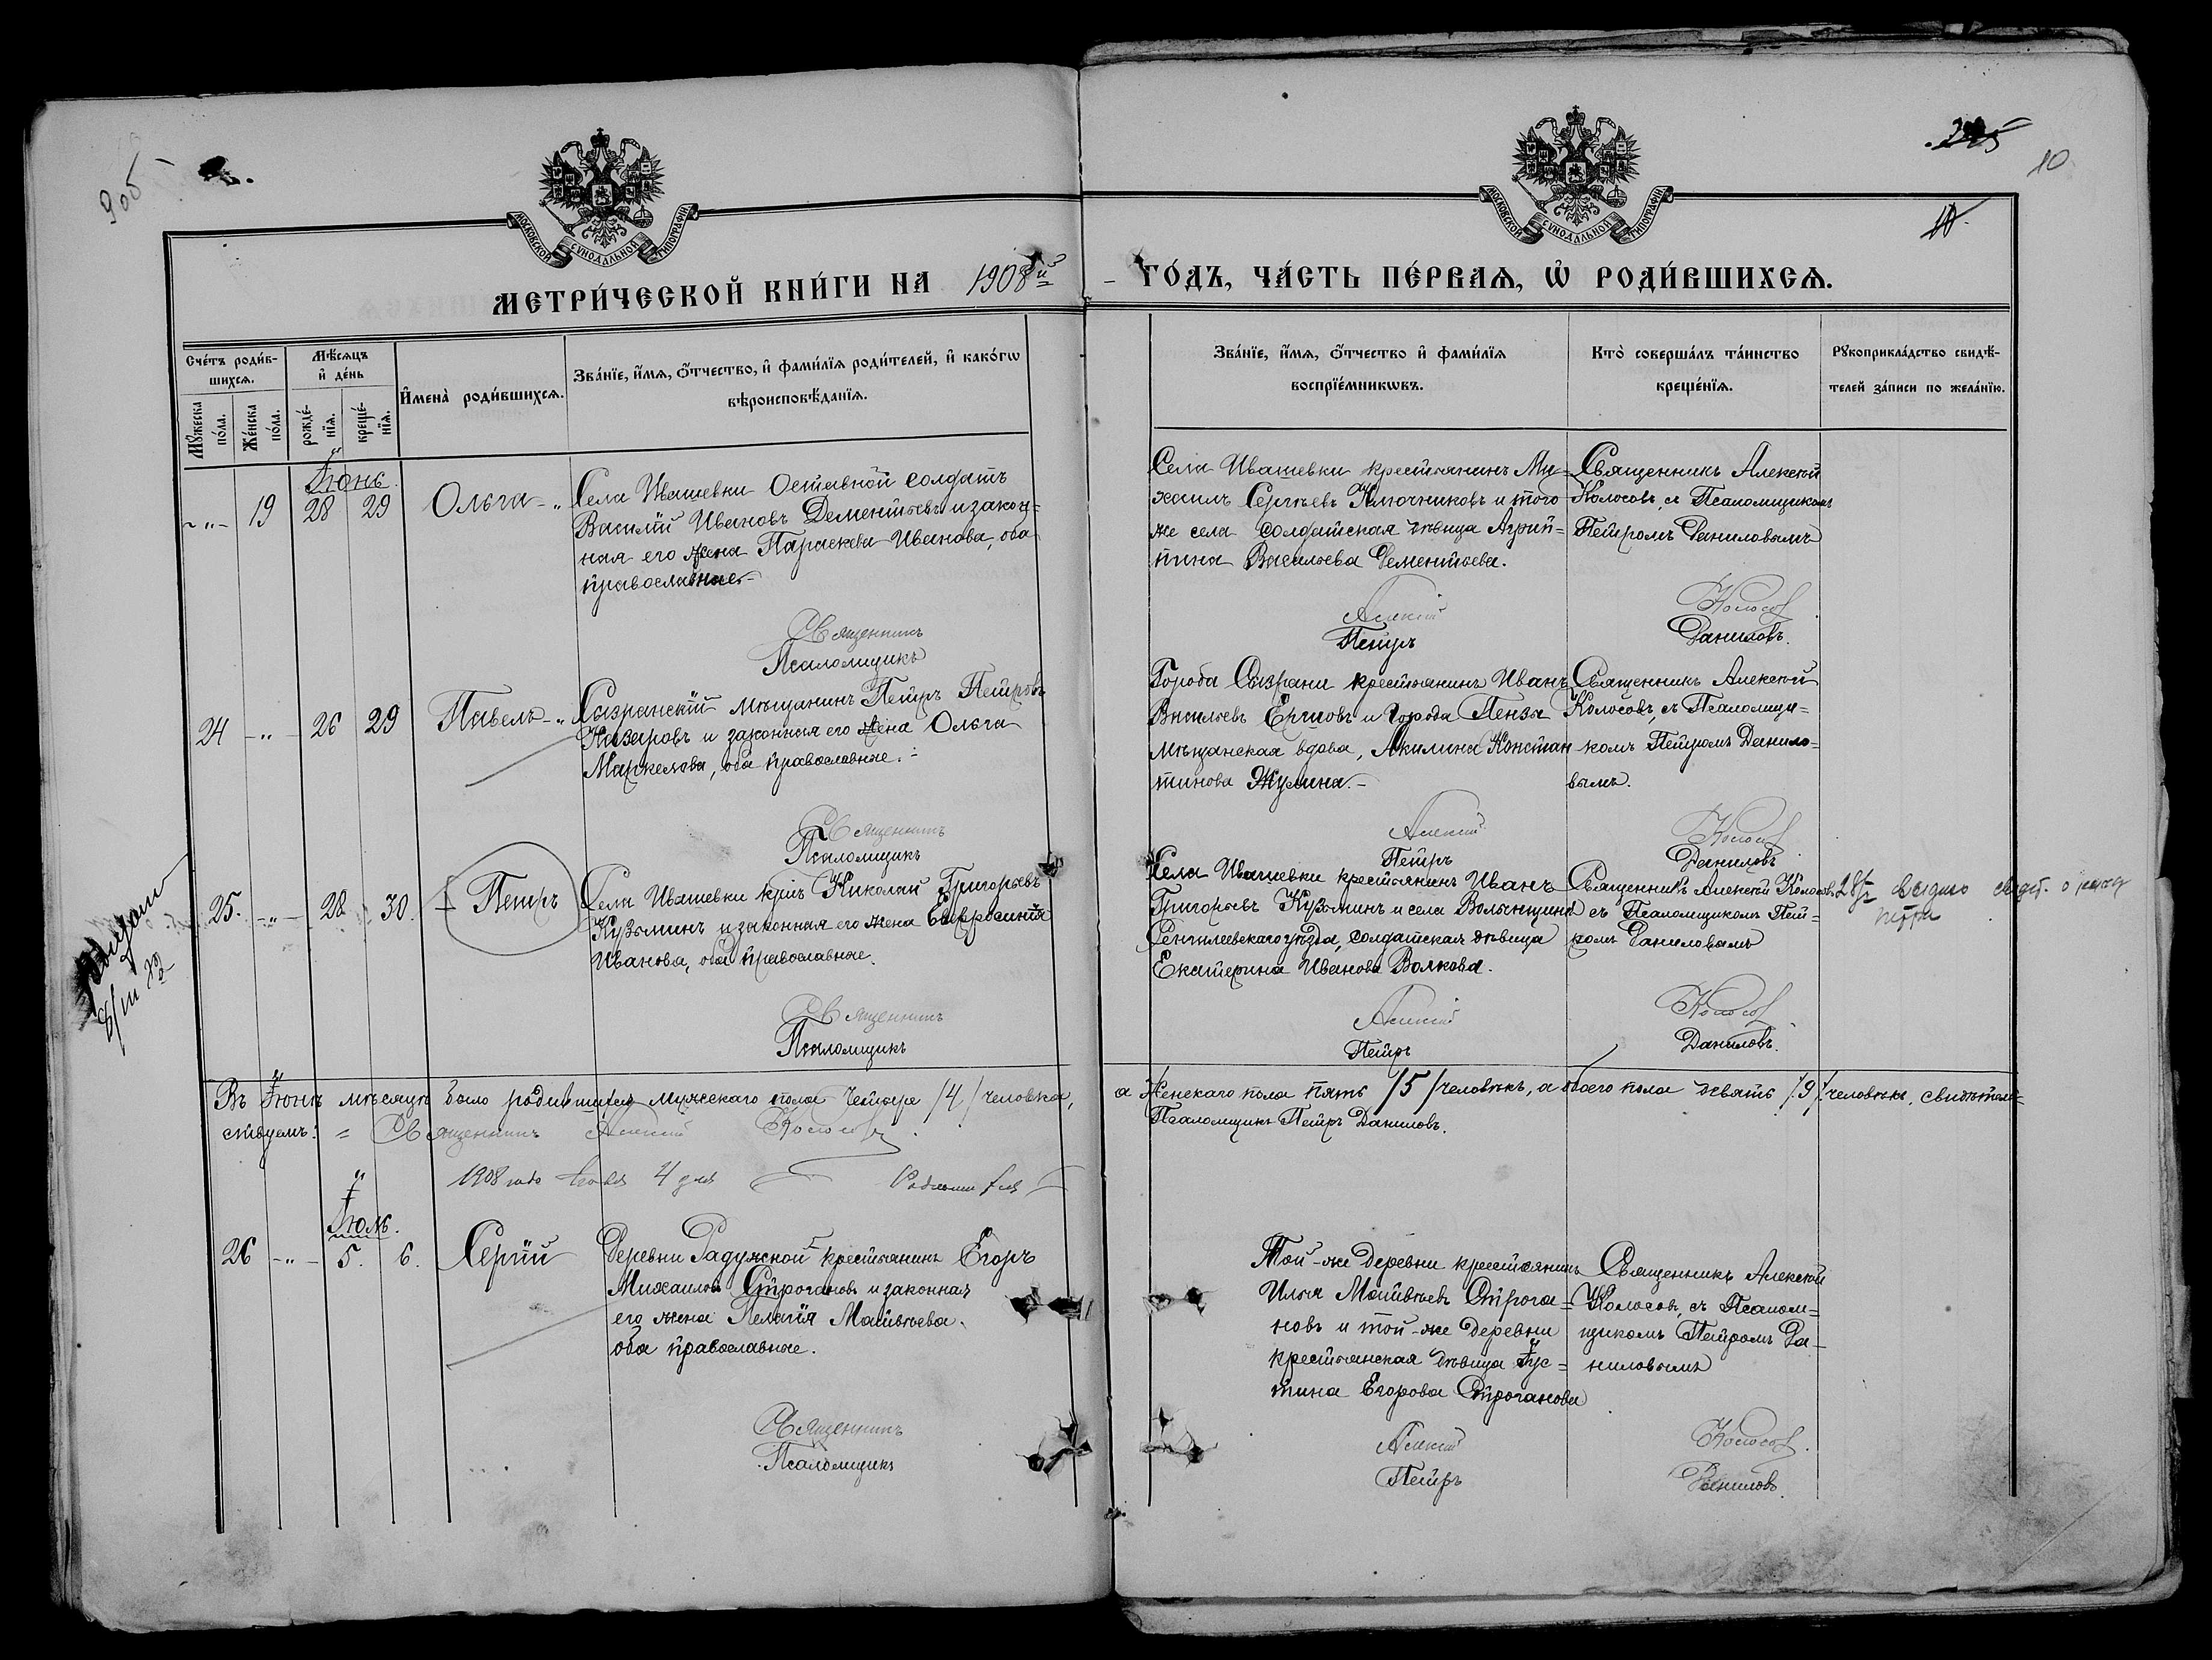 905
225
10
10.
МОСКОВСКОЙ СѴНОДАЛЬНОЙ ТИПОГРАФІИ
МОСКОВСКОЙ СѴНОДАЛЬНОЙ ТИПОГРАФІИ
МЕТРИ́ЧЕСКОЙ КНИ́ГИ НА 1908й
ГО́ДЪ, ЧА́СТЬ ПЕ́РВАѦ, Ѡ҆ РОДИ́ВШИХСѦ.
Сче́тъ роди́в-
шихсѧ.
Мꙋ́жеска
по́ла.
Же́нска
по́ла.
Мѣ́сѧцъ
и҆ де́нь
рожде́-
нїѧ.
креще́-
нїѧ.
И҆мена̀ роди́вшихсѧ.
Зва́нїе, и҆́мѧ, ѻ҆́тчество, и҆ фами́лїѧ роди́телей, и҆ како́гѡ
вѣроисповѣ́данїѧ.
Зва́нїе, и҆́мѧ, ѻ҆́тчество и҆ фами́лїѧ
воспрїе́мникѡвъ.
Кто̀ соверша́лъ та́инство
креще́нїѧ.
Рꙋкоприкла́дство свидѣ́-
телей за́писи по жела́нїю.
Іюнь.
- " - 19 28 29 Ольга - "
Села Ивашевки Оставной солдатъ
Василій Ивановъ Дементьевъ и закон-
ная его жена Параскева Иванова, оба
православные.
Священникъ
Псаломщикъ
Села Ивашевки крестьянинъ Ми-
хаилъ Сергѣевъ Ключниковъ и того
же села солдатская дѣвица Агрип-
пина Васильева Дементьева.
Алексій
Петръ
Священникъ Алексѣй
Колосовъ, съ Псаломщикомъ
Петромъ Даниловымъ
Колосов
Даниловъ.
24 - " - 26 29 Павелъ - "
Сызранскій мѣщанинъ Петръ Петровъ
Назаровъ и законная его жена Ольга
Маркелова, оба православные.
Священникъ
Псаломщикъ
Города Сызрани крестьянинъ Иванъ
Васильевъ Ершовъ и города Пензы
мѣщанская вдова, Акилина Констан
тинова Жулина. -
Алексій
Петръ
Священникъ Алексѣй
Колосовъ, съ Псаломщи-
комъ Петромъ Данило-
вымъ.
Колосов
Даниловъ
25. - " - 28 30. Петръ
Села Ивашевки кр-нъ Николай Григорьевъ
Кузьминъ и законная его жена Евфросинія
Иванова, оба православные.
Священникъ
Псаломщикъ
Села Ивашевки крестьянинъ Иванъ
Григорьевъ Кузьминъ и села Волынщины
Сенгилеевскаго уѣзда, солдатская дѣвица
Екатерина Иванова Волкова.
Алексій
Петръ
Священникъ Алексѣй Колосовъ
съ Псаломщикомъ Пет-
ромъ Даниловымъ
Колосов
Даниловъ.
Въ Іюнѣ мѣсяцѣ было родившихся мужскаго пола четыре /4/ человѣка,
а женскаго пола пять /5/ человѣкъ, а обоего пола девять /9/ человѣкъ, свидѣтель-
ствуемъ: = Священникъ Алексій Колосовъ
Псаломщикъ Петръ Даниловъ.
1908 года Іюля 4 дня
Іюль.
26 - " - 5. 6. Сергій
Деревни Радужной крестьянинъ Егоръ
Михаиловъ Строгановъ и законная
его жена Пелагія Матвѣева.
оба православные.
Священникъ
Псаломщикъ
Той-же деревни крестьянинъ
Илья Матвѣевъ Строга-
новъ и той-же деревни
крестьянская дѣвица Іус-
тина Егорова Строганова
Алексій
Петръ
Священникъ Алексѣй
Колосовъ, съ Псалом-
щикомъ Петромъ Да-
ниловымъ
Колосов.
Даниловъ.